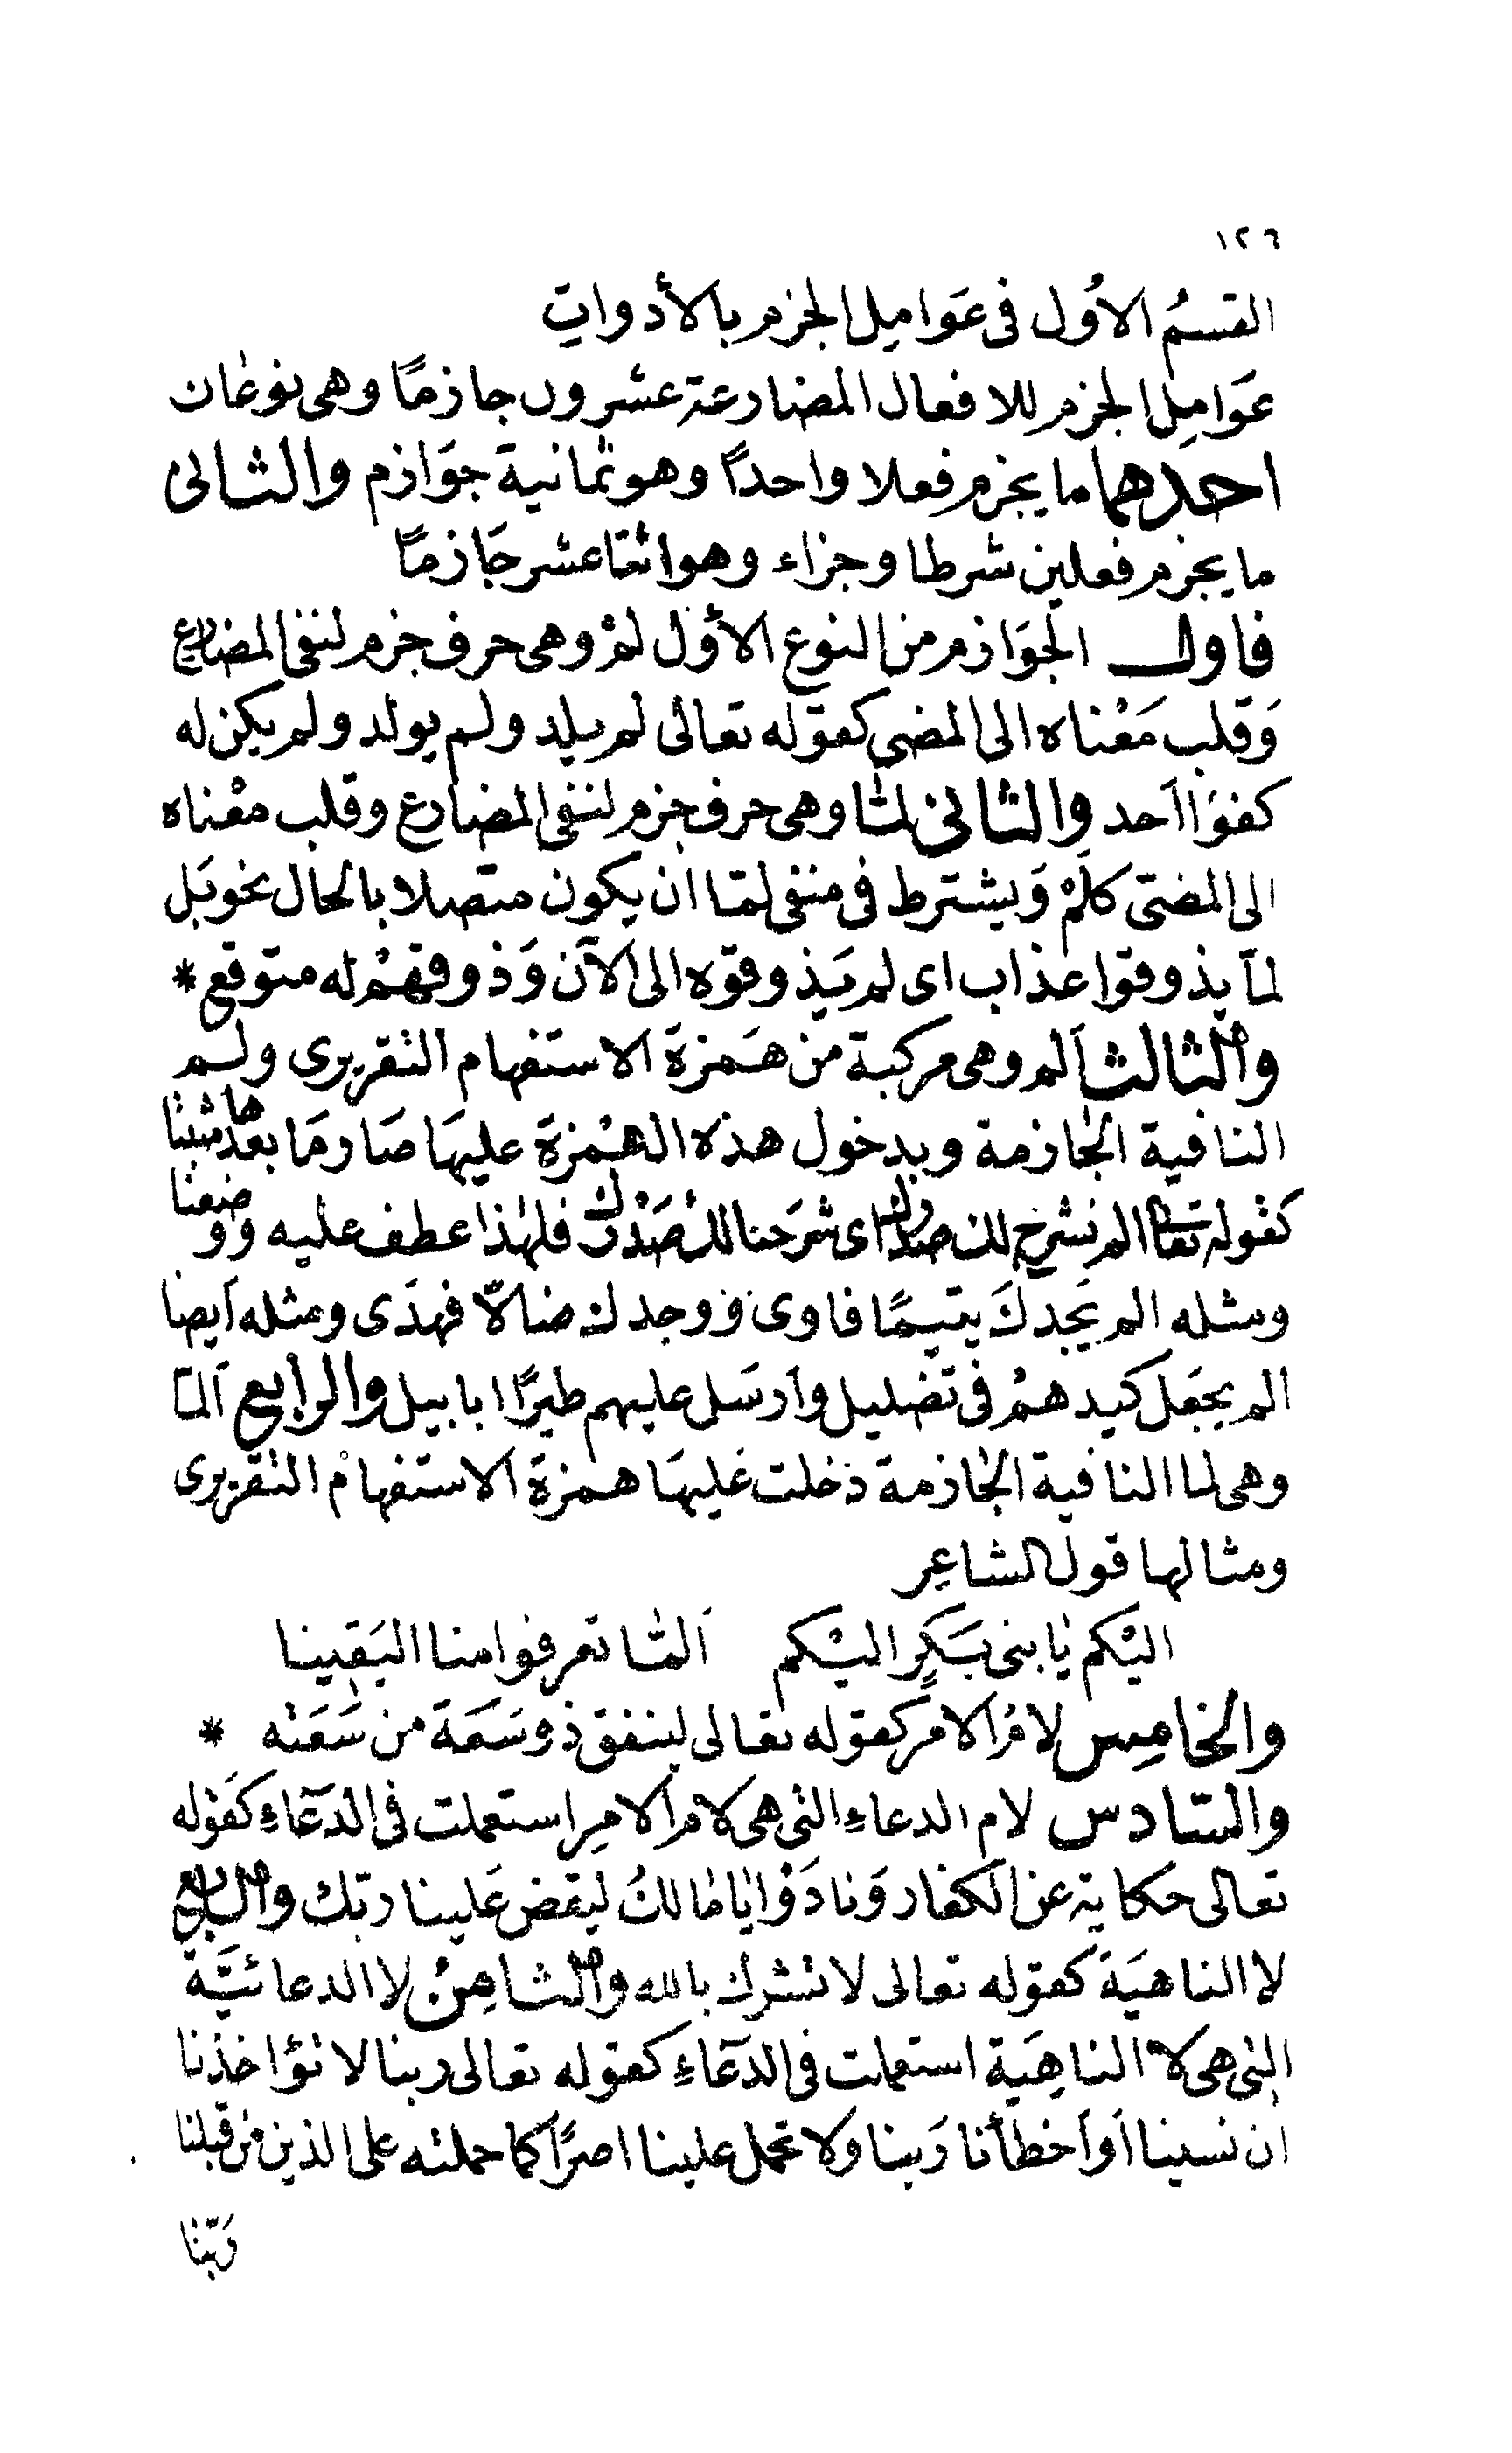 ١٢٦
القسمُ الاوُل فى عَوامِل الجزم بالأدواتِ
عَوامِل الجزم للافعال المضارعة عشرون جازمًا وهى نوعان
احدهما ما يجزم فعلا واحداً وهو ثمانية جوَازم والثانى
ما يجزم فعلين شرطا وجزاء وهو اثنتا عشر جَازمًا
فاول الجوَازم من النوع الأوّل لمْ وهى حرف جزم لنفى المضارع
وَقلب مَعْناه الى المضى كقوله تعالى لم يلد ولم يولد ولم يكن له
كفوًا اَحد والثانى لمّا وهى حرف جزم لنفى المضارع وقلب معْناه
الى المضى كلَمْ وَيشترط فى منفى لمّا ان يكون متصلا بالحال نحو بَل
لمّا يذوقوا عذاب اى لم يَذوقوه الى الآن وَذوقهمْ له متوقع *
والثالث اَلم وهى مركبة من هَمزة الاستفهام التقريرى ولم
النافية الجازمة وبدخول هذه الهمْزة عليهَا صَار مَا بعْدها مثبتا
كقوله تعالى الم نشرح لك صدرك اى شرَحنا لك صَدْرك فلهذا عطف عليه ووضعنا
ومثله الم يَجدكَ يتيمًا فاوى ووجدك ضالاّ فهدَى ومثله اَيضا
الم يجعَل كيدهمْ فى تضليل واَرسَل عليهم طيرًا ابابيل والرابع اَلمّا
وهى لما النافية الجازمة دخلت عَليهَا همزة الاستفهام التقريرى
ومثالها قول الشاعِر
اليْكم يا بنى بَكرٍ اليْكم اَلمّا تعرفوا منا اليَقينا
والخامِس لامُ الامر كقوله تعالى لينفق ذو سَعَة من سَعَته *
والسّادس لام الدعاءِ التى هى لام الامِر استعملت فى الدّعَاءِ كَقوْله
تعالى حكاية عن الكفار وَنادَوْا يا مالكُ ليقض عَلينا ربّك والسابع
لا الناهيَة كقوله تعالى لا تشرك بالله والثامِنُ لا الدعائيَّة
التى هى لا الناهِيَة استعملت فى الدّعَاءِ كقوله تعالى ربنا لا تؤاخذنا
ان نسينا اَو اَخطأنا رَبنا ولا تحمل علينا اصرًا كما حملته على الذين من قبلنا
رَبّنا